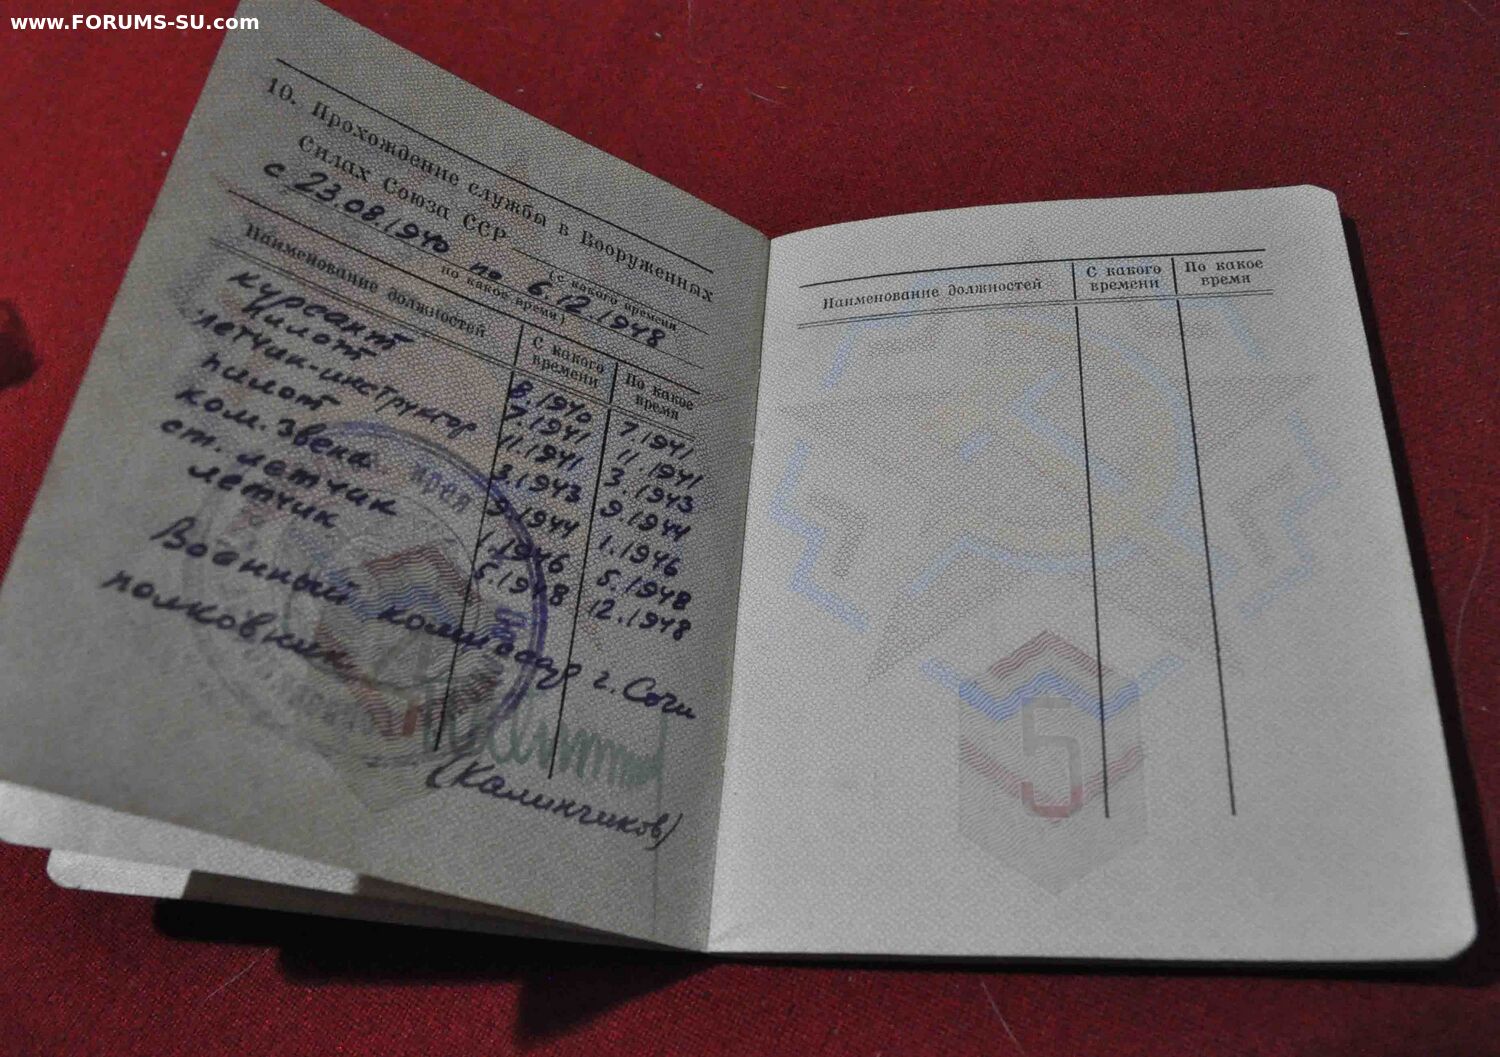 www.FORUMS-SU.com
10. Прохождение службы в Вооруженных
Силах Союза ССР
(с какого времени
с 23.08.1940 по 6.12.1948
по какое время)
Наименование должностей С какого времени По какое время
курсант 8.1940 7.1941
пилот 7.1941 11.1941
летчик-инструктор 11.1941 3.1943
пилот 3.1943 9.1944
ком. звена 9.1944 1.1946
ст. летчик 1.1946 5.1948
летчик 5.1948 12.1948
Военный комиссар г. Сочи
полковник
(Калинчиков)
4
Наименование должностей С какого времени По какое время
5